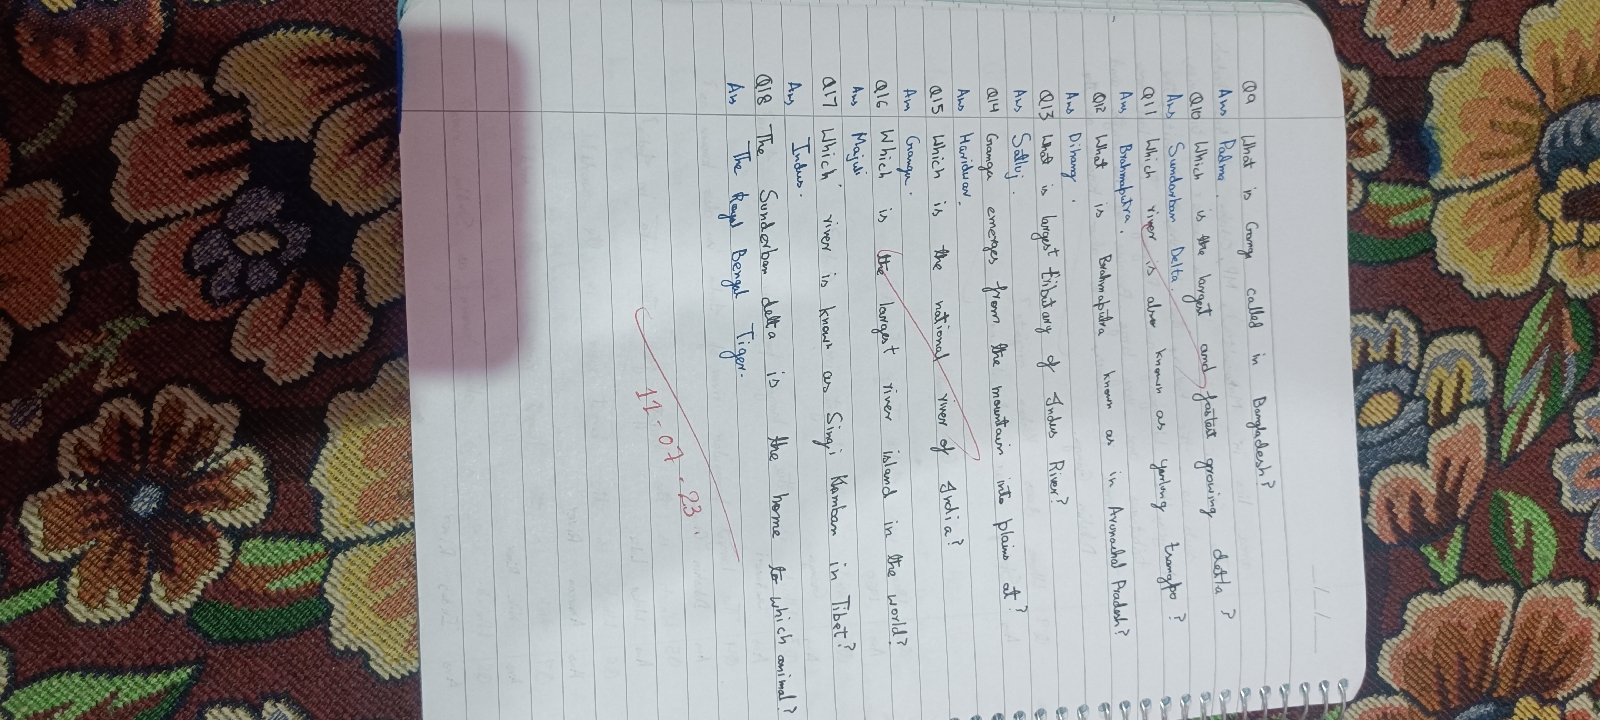 Q9 What is Ganga called in Bangladesh?
Ans Padma.
Q10 Which is the largest and fastest growing delta ?
Ans Sundarban Delta.
Q11 Which river is also known as yarlung tsangpo ?
Ans Brahmaputra.
Q12 What is Brahmaputra known as in Arunachal Pradesh?
Ans Dihang.
Q13 What is largest tributary of Indus River?
Ans Satluj.
Q14 Ganga emerges from the mountain into plains at?
Ans Haridwar.
Q15 Which is the national river of India?
Ans Ganga.
Q16 Which is the largest river island in the world?
Ans Majuli
Q17 Which river is known as Singi Khamban in Tibet?
Ans Indus.
Q18 The Sunderban delta is the home to which animal?
Ans The Royal Bengal Tiger.
11-07-23.